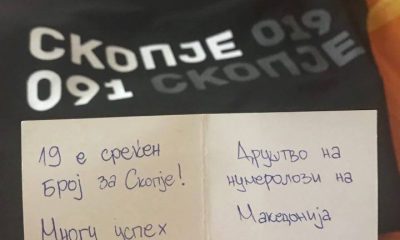 СКОПЈЕ 019
091 СКОПЈЕ
19 е среќен
Број за Скопје!
Многу успех
Друштво на
нумеролози на
Македонија